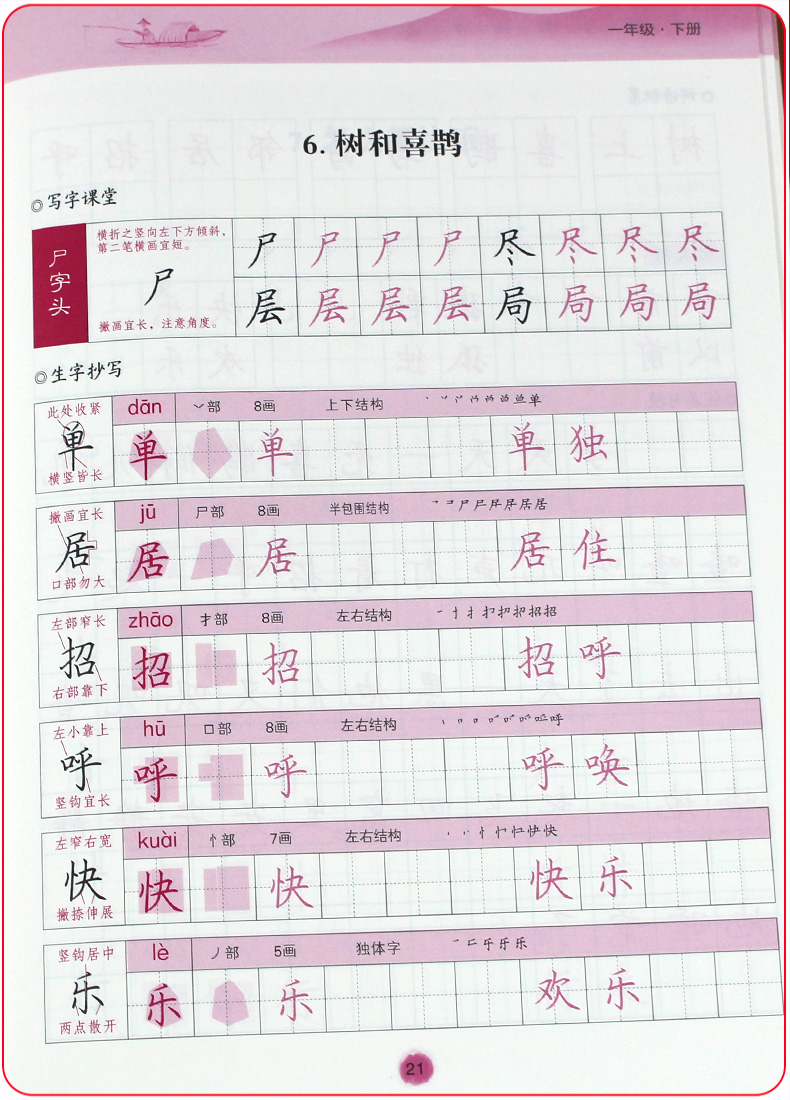 一年级·下册
6. 树和喜鹊
写字课堂
尸字头
横折之竖向左下方倾斜，
第二笔横画宜短。
尸
撇画宜长，注意角度。
尸 尸 尸 尸 尽 尽 尽 尽
层 层 层 层 局 局 局 局
生字抄写
此处收紧
单
横竖皆长
dān 丷部 8画 上下结构
单 单 单 独
撇画宜长
居
口部勿大
jū 尸部 8画 半包围结构
居 居 居 住
左部窄长
招
右部靠下
zhāo 扌部 8画 左右结构
招 招 招 呼
左小靠上
呼
竖钩宜长
hū 口部 8画 左右结构
呼 呼 呼 唤
左窄右宽
快
撇捺伸展
kuài 忄部 7画 左右结构
快 快 快 乐
竖钩居中
乐
两点散开
lè 丿部 5画 独体字
乐 乐 欢 乐
21